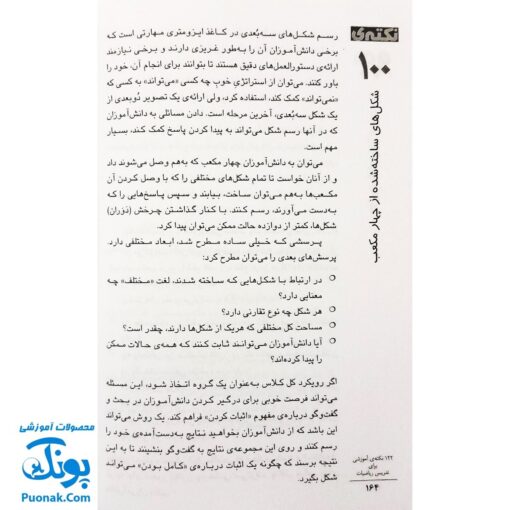 نکته‌ی
۱۰۰
شکل‌های ساخته‌شده از چهار مکعب
رسم شکل‌های سه‌بُعدی در کاغذ ایزومتری مهارتی است که
برخی دانش‌آموزان آن را به‌طور غریزی دارند و برخی نیازمند
ارائه‌ی دستورالعمل‌های دقیق هستند تا بتوانند برای انجام آن، خود را
باور کنند. می‌توان از استراتژیِ خوبِ چه کسی «می‌تواند» به کسی که
«نمی‌تواند» کمک کند، استفاده کرد؛ ولی ارائه‌ی یک تصویر دُوبعدی از
یک شکل سه‌بُعدی، آخرین مرحله است. دادن مسائلی به دانش‌آموزان
که در آنها رسم شکل می‌تواند به پیدا کردن پاسخ کمک کند، بسیار
مهم است.
می‌توان به دانش‌آموزان چهار مکعب که به‌هم وصل می‌شوند داد
و از آنان خواست تا تمام شکل‌های مختلفی را که با وصل کردن آن
مکعب‌ها به‌هم می‌توان ساخت، بیابند و سپس پاسخ‌هایی را که
به‌دست می‌آورند، رسم کنند. با کنار گذاشتن چرخش (دَوَران)
شکل‌ها، کمتر از دوازده حالت ممکن می‌توان پیدا کرد.
پرسشی که خیلی ساده مطرح شد، ابعاد مختلفی دارد.
پرسش‌های بعدی را می‌توان مطرح کرد:
● در ارتباط با شکل‌هایی که ساخته شدند، لغت «مختلف» چه
معنایی دارد؟
● هر شکل چه نوع تقارنی دارد؟
● مساحت کل مختلفی که هریک از شکل‌ها دارند، چقدر است؟
● آیا دانش‌آموزان می‌توانند ثابت کنند که همه‌ی حالات ممکن
را پیدا کرده‌اند؟
اگر رویکرد کل کلاس به‌عنوان یک گروه اتخاذ شود، این مسئله
می‌تواند فرصت خوبی برای درگیر کردن دانش‌آموزان در بحث و
گفت‌وگو درباره‌ی مفهوم «اثبات کردن» فراهم کند. یک روش می‌تواند
این باشد که از دانش‌آموزان بخواهید نتایج به‌دست‌آمده‌ی خود را
رسم کنند و روی این مجموعه‌ی نتایج به گفت‌وگو بنشینند تا به این
نتیجه برسند که چگونه یک اثبات درباره‌ی «کامل بودن» می‌تواند
شکل بگیرد.
۱۲۲ نکته‌ی آموزشی
برای
تدریس ریاضیات
۱۶۴
محصولات آموزشی
پونک
Puonak.Com